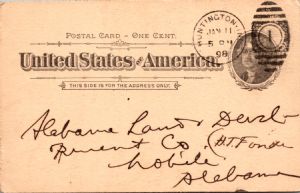 POSTAL CARD – ONE CENT.
HUNTINGTON,
JAN 11
5 PM
98
1
United States of America.
THIS SIDE IS FOR THE ADDRESS ONLY.
Alabama Land & Devel
opment Co. (
Mobile
Alabama